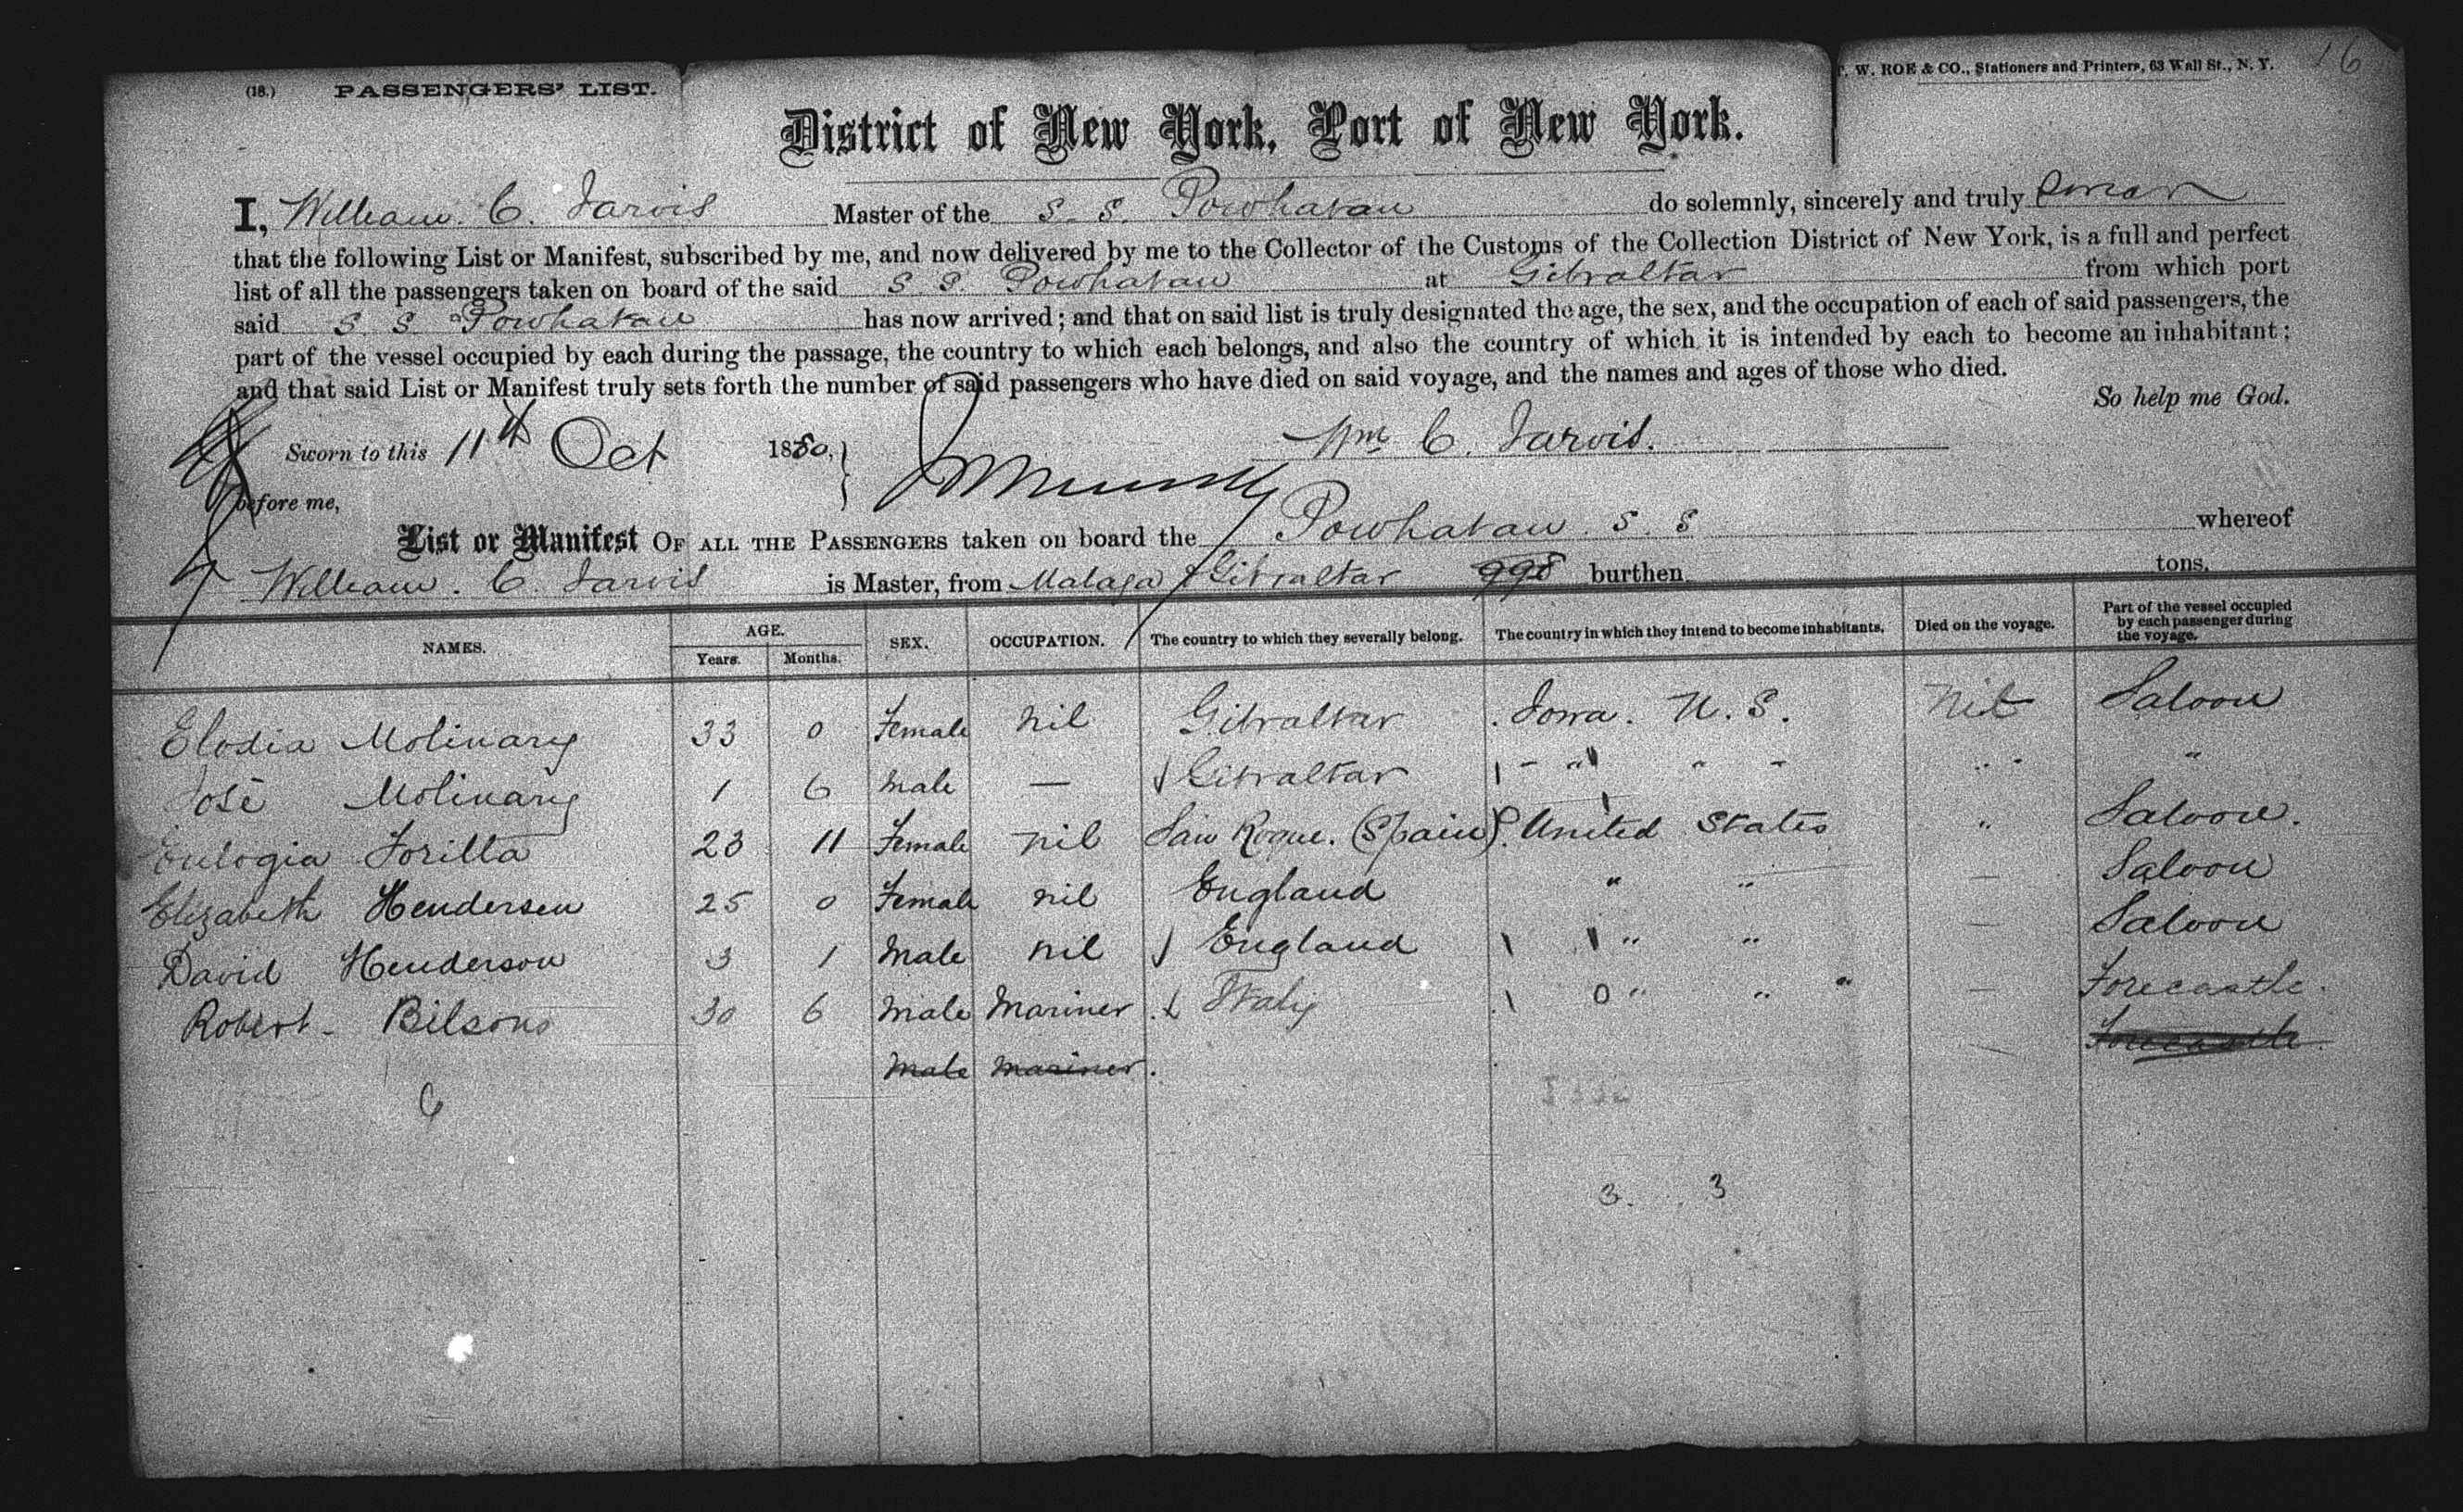 (18.) PASSENGERS' LIST.
W. ROE & CO., Stationers and Printers, 63 Wall St., N. Y. 16
District of New York, Port of New York.
I, William. C. Jarvis Master of the S. S. Powhatan do solemnly, sincerely and truly swear
that the following List or Manifest, subscribed by me, and now delivered by me to the Collector of the Customs of the Collection District of New York, is a full and perfect
list of all the passengers taken on board of the said S S. Powhatan at Gibraltar from which port
said S S Powhatan has now arrived; and that on said list is truly designated the age, the sex, and the occupation of each of said passengers, the
part of the vessel occupied by each during the passage, the country to which each belongs, and also the country of which it is intended by each to become an inhabitant;
and that said List or Manifest truly sets forth the number of said passengers who have died on said voyage, and the names and ages of those who died.
So help me God.
Sworn to this 11th Oct 1880,
Wm C. Jarvis.
before me,
List or Manifest OF ALL THE PASSENGERS taken on board the Powhatan. S. S whereof
William. C. Jarvis is Master, from Malaga & Gibraltar 998 burthen tons.
NAMES. AGE. Years. Months. SEX. OCCUPATION. The country to which they severally belong. The country in which they intend to become inhabitants. Died on the voyage. Part of the vessel occupied by each passenger during the voyage.
Elodia Molinary 33 0 Female nil Gibraltar Iowa. U. S. Nil Saloon
José Molinary 1 6 male — Gibraltar " " " " "
Eulogia Forilla 23 11 Female nil San Roque. (Spain) United States " Saloon.
Elizabeth Hendersen 25 0 Female nil England " " — Saloon
David Henderson 3 1 Male nil England " " — Saloon
Robert Bilsons 30 6 Male Mariner Italy " " — Forecastle.
Male Mariner. — Forecastle.
6
3. 3